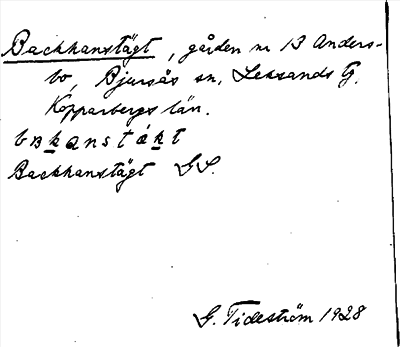 Backhanstägt, gården nr 13 Anders-
bo, Bjursås sn, Leksands G.
Kopparbergs län.
Backhanstägt GS.
G. Tideström 1928